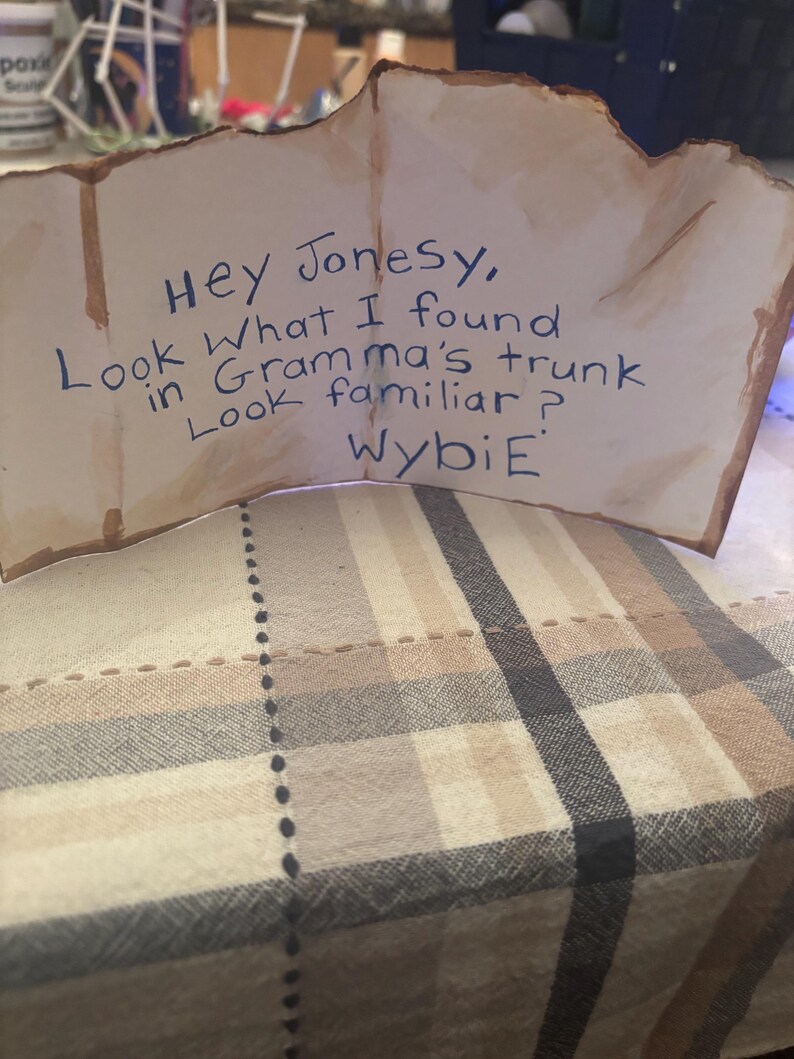 poxi
Sculp
Hey Jonesy,
Look What I found
in Gramma's trunk
Look familiar?
WybiE